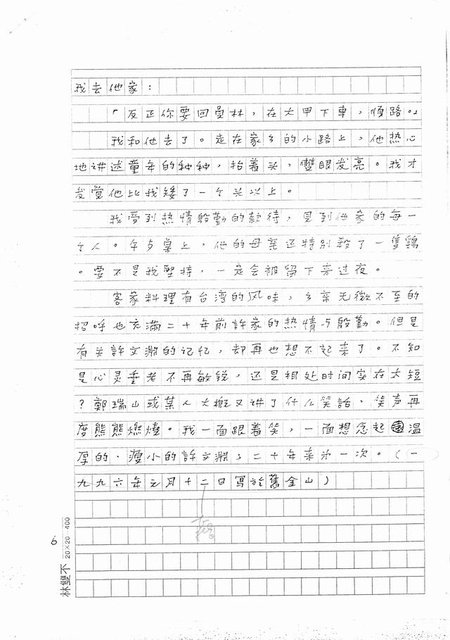 我去他家：
「反正你要回員林，在大甲下車，順路。」
我和他去了。走在家乡的小路上，他热心
地讲述童年的种种，抬着头，雙眼发亮。我才
发觉他比我矮了一个头以上。
我受到热情殷勤的款待，見到他家的每一
个人。午歺桌上，他的母亲还特別殺了一隻鷄
。要不是我堅持，一定会被留下來过夜。
客家料理有台湾的风味，乡亲无微不至的
招呼也充滿二十年前許家的热情与殷勤。但是
有关許文淵的记忆，却再也想不起来了。不知
是心灵垂老不再敏锐，还是相处时间实在太短
？鄭瑞山或某人大概又讲了什么笑話，笑声再
度熊熊燃燒。我一面跟着笑，一面想念起溫
厚的、瘦小的許文淵，二十年来第一次。（一
九九六年元月十二日寫於舊金山）
6
林雙不 20×20 400